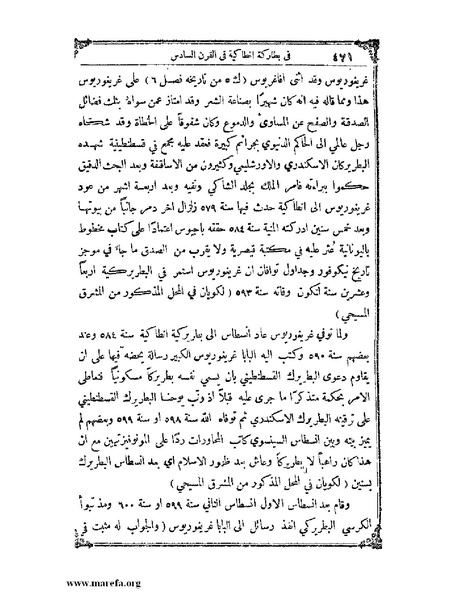 في بطاركة انطاكية في القرن السادس ٤٦١
غريغوريوس وقد اثنى افاغريوس (ك ٥ من تاريخه فصل ٦) على غريغوريوس
هذا ومما قاله فيه انه كان شهيرًا بصناعة الشعر وقد امتاز عمن سواه بتلك فضائل
الصدقة والصفح عن المساوئ والدموع وكان شفوقًا على الخطاة وقد شكاه
رجل عالمي الى الحاكم الدنيوي بجرائم كبيرة فعقد عليه مجمع في قسطنطينية شهده
البطريركان الاسكندري والاورشليمي وكثيرون من الاساقفة وبعد البحث الدقيق
حكموا ببراءته فامر الملك بجلد الشاكي ونفيه وبعد اربعة اشهر من عود
غريغوريوس الى انطاكية حدث فيها سنة ٥٧٩ زلزال اخر دمر جانبًا من بيوتها
وبعد خمس سنين ادركته المنية سنة ٥٨٤ حققه باجيوس اعتمادًا على كتاب مخطوط
باليونانية عثر عليه في مكتبة قيصرية ولا يقرب من الصدق ما جاء في موجز
تاريخ نيكوفور وجداول توافان ان غريغوريوس استمر في البطريركية اربعًا
وعشرين سنة لتكون وفاته سنة ٥٩٣ (لكويان في المحل المذكور من المشرق
المسيحي)
ولما توفي غريغوريوس عاد انسطاس الى بطريركية انطاكية سنة ٥٨٤ وعند
بعضهم سنة ٥٩٠ وكتب اليه البابا غريغوريوس الكبير رسالة يحضه فيها على ان
يقاوم دعوى البطريرك القسطنطيني بان يسمي نفسه بطريركًا مسكونيًا فتعاطى
الامر بحكمة متذكرًا ما جرى عليه قبلًا اذ وتب يوحنا البطريرك القسطنطيني
على ترقيته البطريرك الاسكندري ثم توفاه الله سنة ٥٩٨ او سنة ٥٩٩ وبعضهم لم
يميز بينه وبين انسطاس السينوي كاتب المحاورات ردًا على المونوفيزيتيين مع ان
هذا كان راهبًا لا بطريركًا وعاش بعد ظهور الاسلام اي بعد انسطاس البطريرك
بسنين (لكويان في المحل المذكور من المشرق المسيحي)
وقام بعد انسطاس الاول انسطاس الثاني سنة ٥٩٩ او سنة ٦٠٠ ومذ تبوأ
الكرسي البطريركي انفذ رسائل الى البابا غريغوريوس (والجواب له مثبت في
www.marefa.org